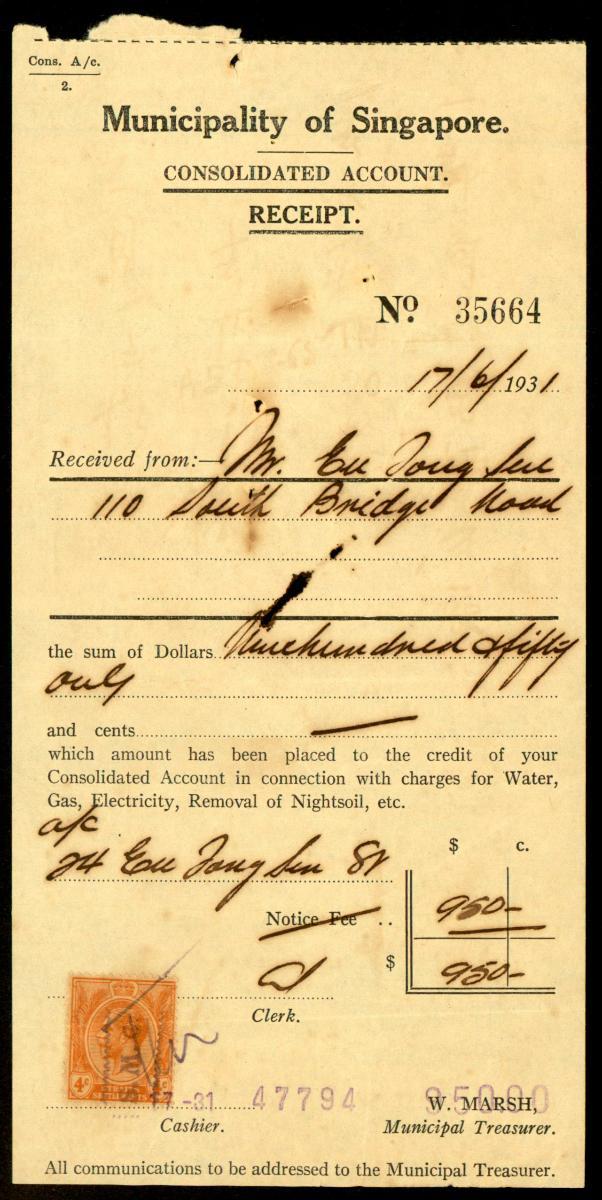 Cons. A/c.
2.
Municipality of Singapore.
CONSOLIDATED ACCOUNT.
RECEIPT.
No. 35664
17/6/1931
Received from:— Mr. Eu Tong Sen
110 South Bridge Road
the sum of Dollars Ninehundred & fifty
only
and cents —
which amount has been placed to the credit of your
Consolidated Account in connection with charges for Water,
Gas, Electricity, Removal of Nightsoil, etc.
a/c
24 Eu Tong Sen St
$ c.
Notice Fee .. 950-
$ 950-
Clerk.
4c
17 -31 47794 950.00
W. MARSH,
Cashier. Municipal Treasurer.
All communications to be addressed to the Municipal Treasurer.